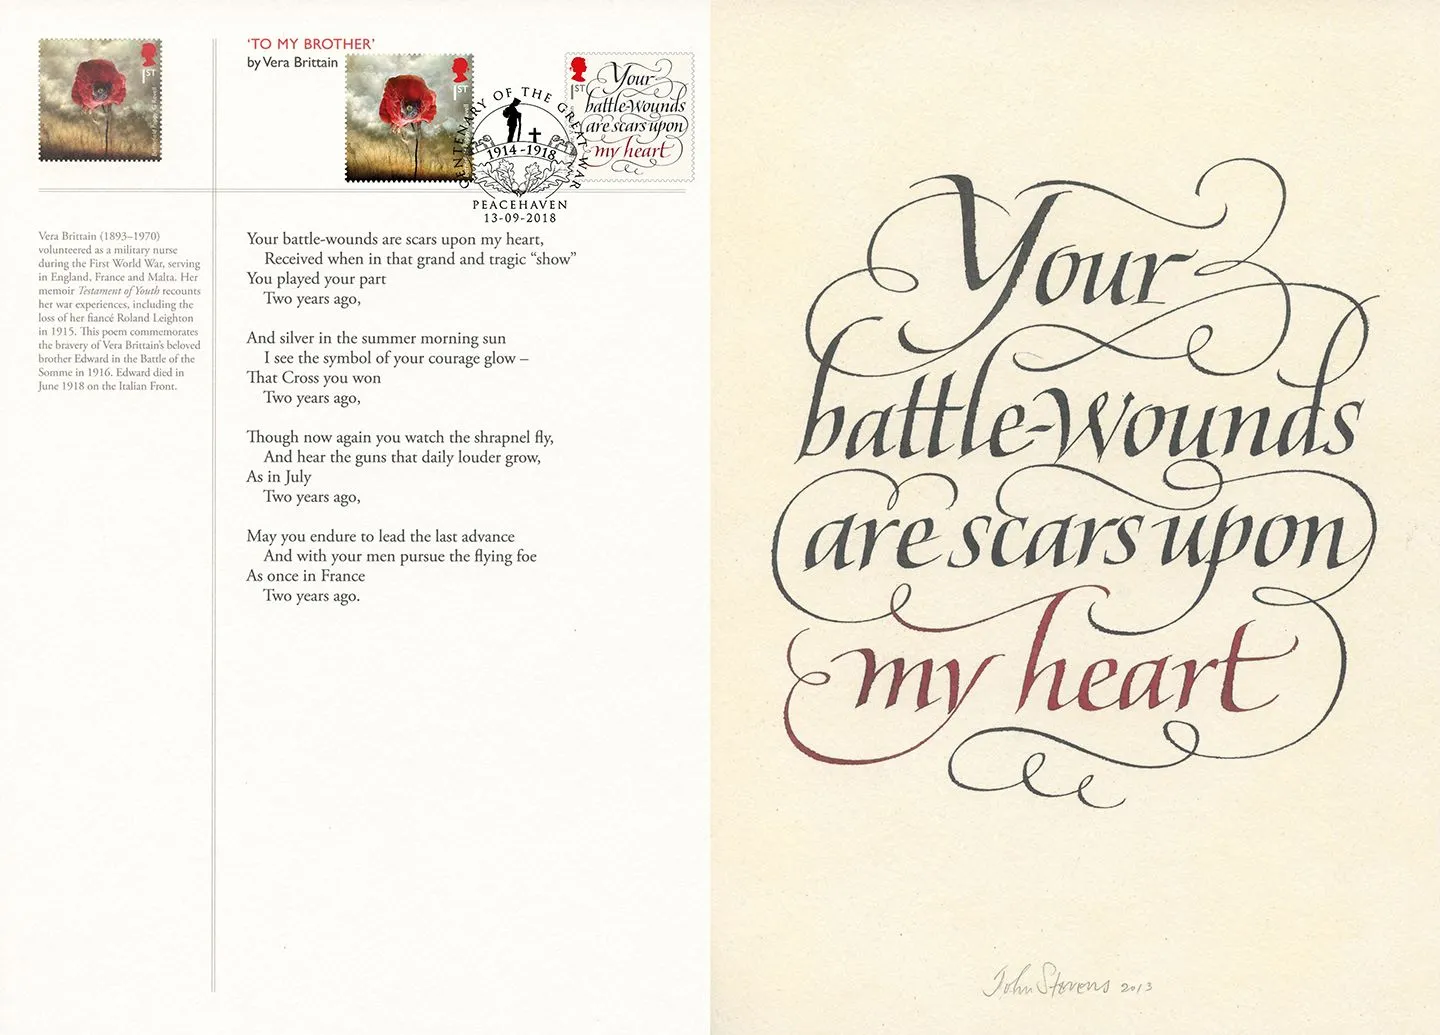 1ST
‘TO MY BROTHER’
by Vera Brittain
1ST
1ST
Your
battle-wounds
are scars upon
my heart
CENTENARY OF THE GREAT WAR
1914-1918
PEACEHAVEN
13-09-2018
Vera Brittain (1893–1970)
volunteered as a military nurse
during the First World War, serving
in England, France and Malta. Her
memoir Testament of Youth recounts
her war experiences, including the
loss of her fiancé Roland Leighton
in 1915. This poem commemorates
the bravery of Vera Brittain’s beloved
brother Edward in the Battle of the
Somme in 1916. Edward died in
June 1918 on the Italian Front.
Your battle-wounds are scars upon my heart,
Received when in that grand and tragic “show”
You played your part
Two years ago,
And silver in the summer morning sun
I see the symbol of your courage glow –
That Cross you won
Two years ago,
Though now again you watch the shrapnel fly,
And hear the guns that daily louder grow,
As in July
Two years ago,
May you endure to lead the last advance
And with your men pursue the flying foe
As once in France
Two years ago.
Your
battle-wounds
are scars upon
my heart
John Stevens 2013